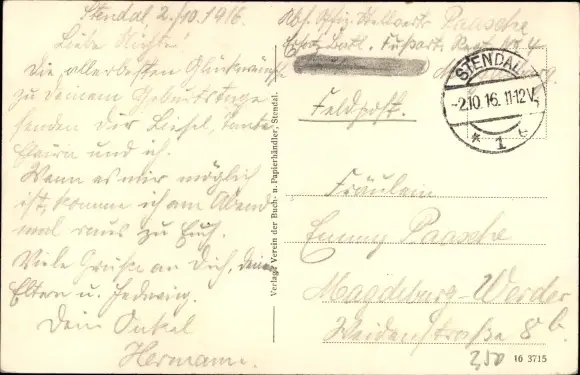 Stendal 2./10.1916.
Liebe Nichte!
Die allerbesten Glückwünsche
zu Deinem Geburtstage
senden dir Liesel, Tante
Klara und ich.
Wenn es mir möglich
ist, komme ich am Abend
mal raus zu Euch.
Viele Grüße an Dich, Deine
Eltern u. Hedwig.
Dein Onkel
Hermann.
Verlag: Verein der Buch- u. Papierhändler, Stendal.
Abs. Paasche
Ersatz Batl. Fußart. Reg. No 4
Feldpost.
STENDAL
-2.10.16. 11-12V.
* 1 c
Fräulein
Emmy Paasche
Magdeburg-Werder
Weidenstraße 8 b.
350
16 3715